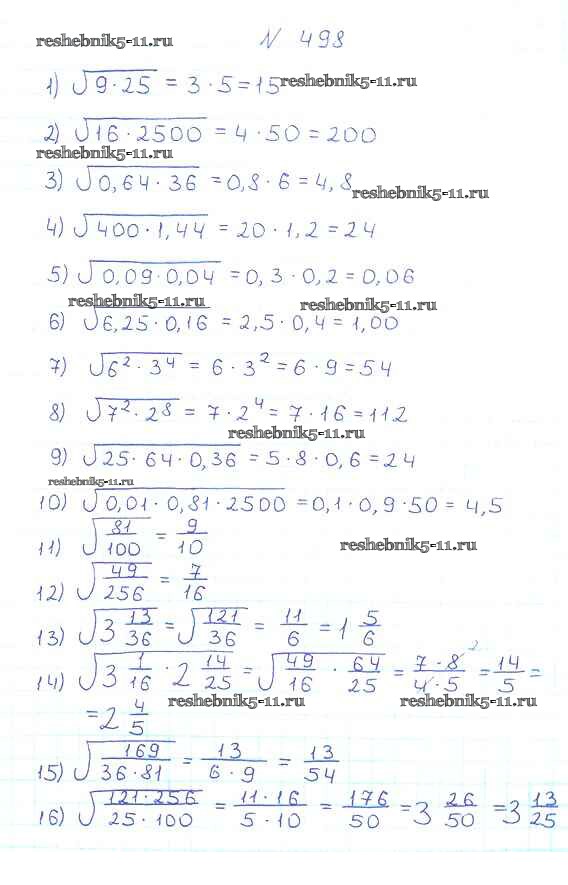 reshebnik5-11.ru
N 498
1) √9·25 = 3·5=15 reshebnik5-11.ru
2) √16·2500 = 4·50=200
reshebnik5-11.ru
3) √0,64·36 =0,8·6=4,8
reshebnik5-11.ru
4) √400·1,44 =20·1,2=24
5) √0,09·0,04 =0,3·0,2=0,06
reshebnik5-11.ru reshebnik5-11.ru
6) √6,25·0,16 =2,5·0,4=1,00
7) √6²·3⁴ = 6·3²=6·9=54
8) √7²·2⁸ = 7·2⁴=7·16=112
reshebnik5-11.ru
9) √25·64·0,36 =5·8·0,6=24
reshebnik5-11.ru
10) √0,01·0,81·2500 =0,1·0,9·50= 4,5
11) √81/100 = 9/10
reshebnik5-11.ru
12) √49/256 = 7/16
13) √3 13/36 = √121/36 = 11/6 = 1 5/6
14) √3 1/16 · 2 14/25 = √49/16 · 64/25 = 7·8/4·5 2 = 14/5 =
reshebnik5-11.ru reshebnik5-11.ru
=2 4/5
15) √169/36·81 = 13/6·9 = 13/54
16) √121·256/25·100 = 11·16/5·10 = 176/50 =3 26/50 =3 13/25